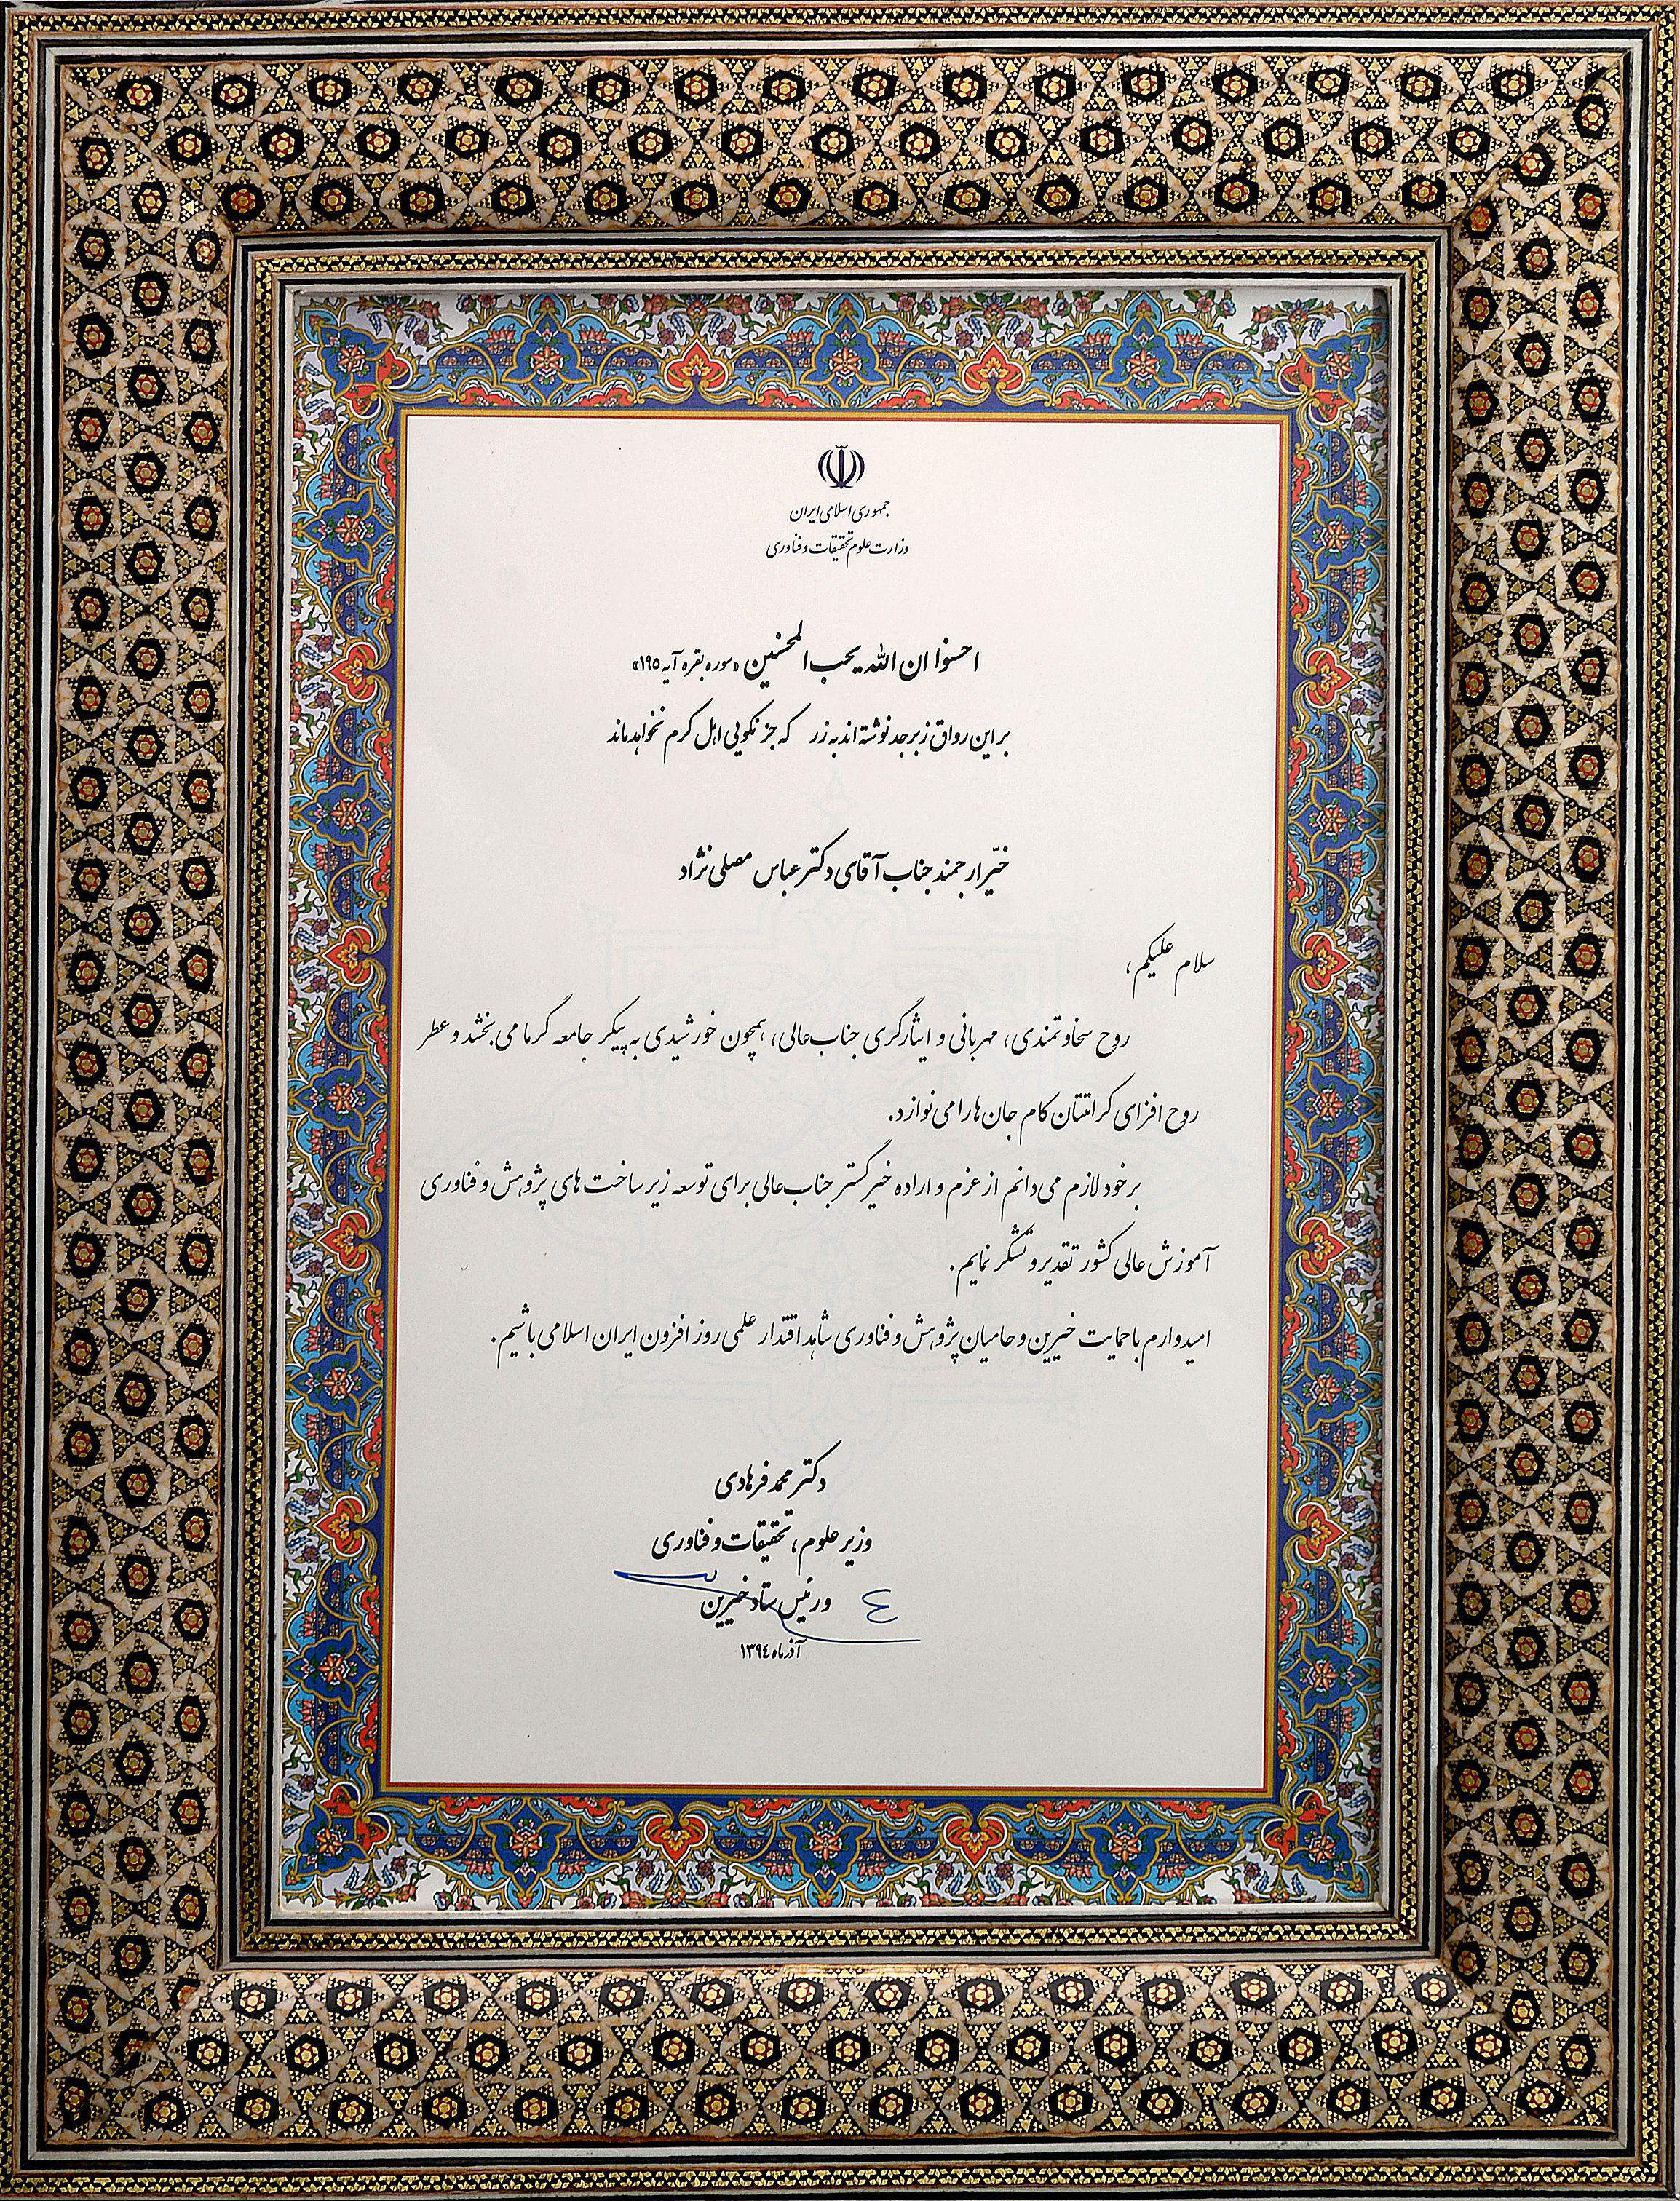 جمهوری اسلامی ایران
وزارت علوم تحقیقات و فناوری
احسنوا ان الله یحب المحسنین «سوره بقره آیه ۱۹۵»
بر این رواق زبرجد نوشته اند به زر که جز نکویی اهل کرم نخواهد ماند
خیّر ارجمند جناب آقای دکتر عباس مصلی نژاد
سلام علیکم،
روح سخاوتمندی، مهربانی و ایثارگری جناب عالی، همچون خورشیدی به پیکر جامعه گرما می بخشد و عطر
روح افزای کرامتتان کام جان ها را می نوازد.
بر خود لازم می دانم از عزم و اراده خیر گستر جناب عالی برای توسعه زیر ساخت های پژوهش و فناوری
آموزش عالی کشور تقدیر و تشکر نمایم.
امیدوارم با حمایت خیرین و حامیان پژوهش و فناوری شاهد اقتدار علمی روز افزون ایران اسلامی باشیم.
دکتر محمد فرهادی
وزیر علوم، تحقیقات و فناوری
و رئیس ستاد خیرین
آذر ماه ۱۳۹٤